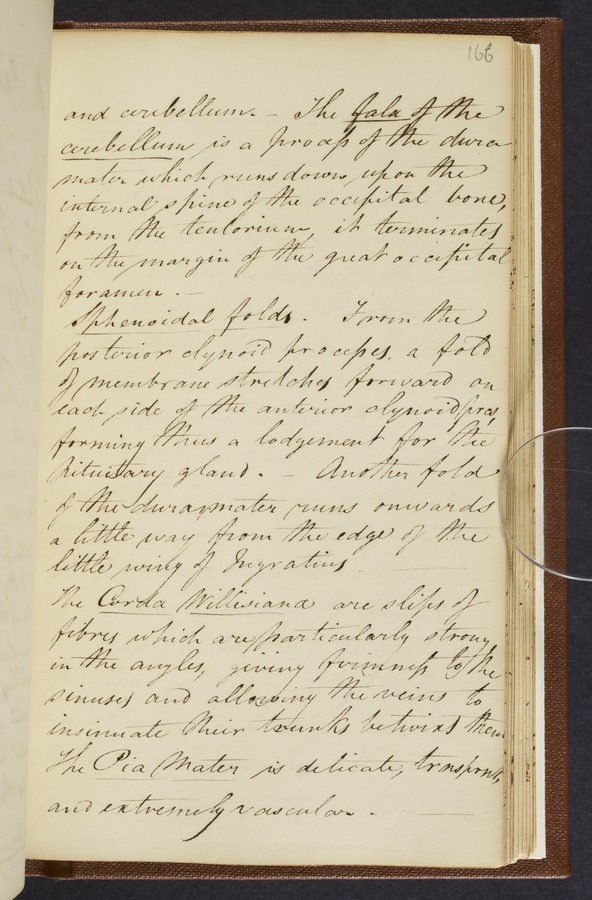 166
and cerebellum. – The falx of the
cerebellum is a process of the dura
mater which runs down upon the
internal spine of the occipital bone,
from the tentorium, it terminates
on the margin of the great occipital
foramen. –
Sphenoidal folds. From the
posterior clynoid processes, a fold
of membrane stretches forward on
each side of the anterior clynoid pro's,
forming thus a lodgement for the
pituitary gland. – Another fold
of the dura mater runs onwards
a little way from the edge of the
little wing of Ingratius.
The Corda Willisiana are slips of
fibres which are particularly strong
in the angles, giving firmness to the
sinuses and allowing the veins to
insinuate their trunks betwixt them
The Pia Mater is delicate, trnsprnt,
and extremely vascular. –